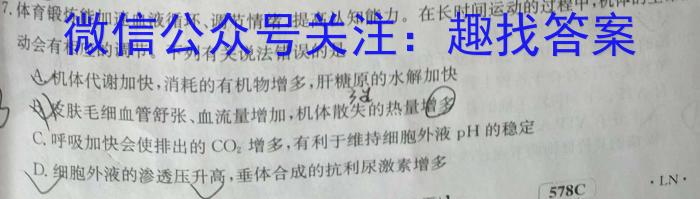 7.体育锻炼能加速血液循环、调节情绪、提高认知能力。在长时间运动的过程中,机体的
微信公众号关注：趣找答案
动会有相应的调节。下列有关说法错误的是
A.机体代谢加快,消耗的有机物增多,肝糖原的水解加快
B.皮肤毛细血管舒张、血流量增加,机体散失的热量增多
C.呼吸加快会使排出的CO₂增多,有利于维持细胞外液pH的稳定
D.细胞外液的渗透压升高,垂体合成的抗利尿激素增多
578C
·LN·